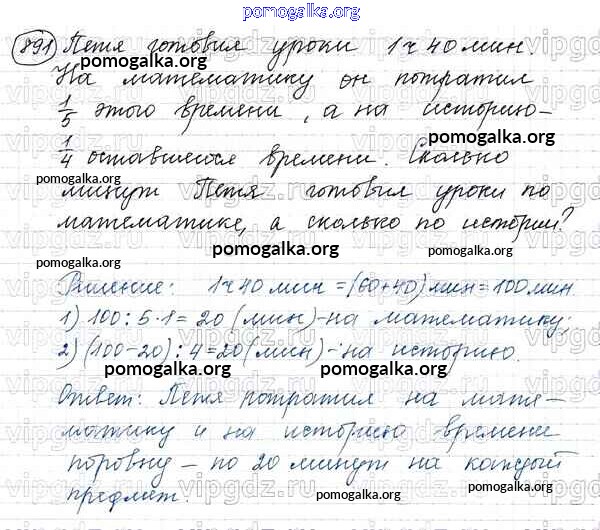 pomogalka.org
891 Петя готовил уроки 1 ч 40 мин
pomogalka.org pomogalka.org
На математику он потратил
1/5 этого времени, а на историю –
pomogalka.org
1/4 оставшегося времени. Сколько
pomogalka.org pomogalka.org
минут Петя готовил уроки по
математике, а сколько по истории?
pomogalka.org
Решение: 1 ч 40 мин = (60+40) мин = 100 мин
1) 100 : 5 · 1 = 20 (мин) – на математику;
2) (100 – 20) : 4 = 20 (мин) – на историю.
pomogalka.org pomogalka.org
Ответ: Петя потратил на мате-
pomogalka.org
матику и на историю времени
поровну – по 20 минут на каждый
pomogalka.org pomogalka.org
предмет.
pomogalka.org